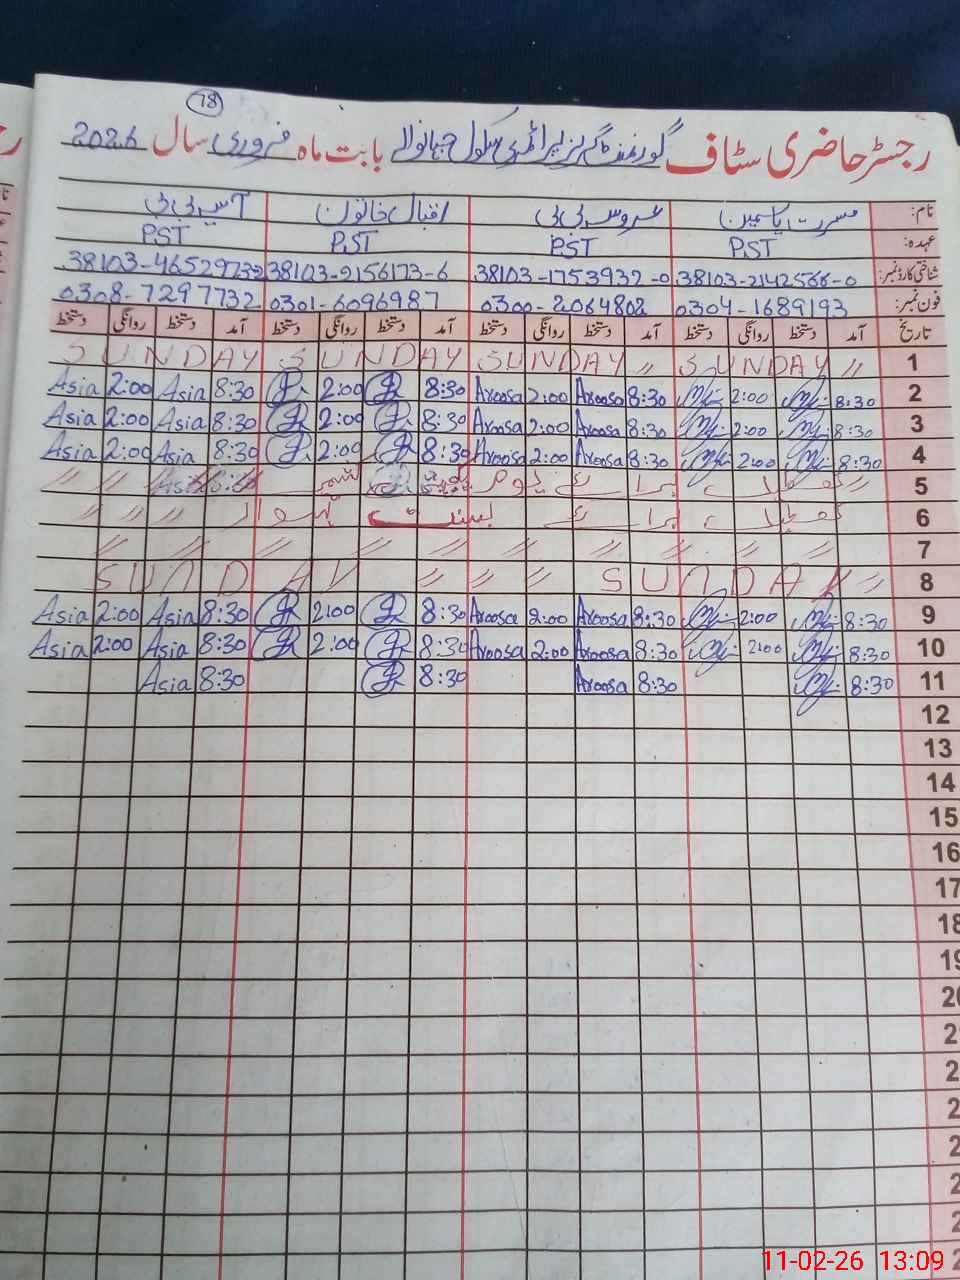 78
رجسٹر حاضری سٹاف گورنمنٹ گرلز پرائمری سکول جہانوالے بابت ماہ فروری سال 2026
نام: مسرت یاسمین عروسہ بی بی اقبال خاتون آسیہ بی بی
عہدہ: PST PST PST PST
شناختی کارڈ نمبر: 38103-2142566-0 38103-1753932-0 38103-2156173-6 38103-46529732
فون نمبر: 0304-1689193 0300-2064802 0301-6096987 0308-7297732
تاریخ آمد دستخط روانگی دستخط آمد دستخط روانگی دستخط آمد دستخط روانگی دستخط آمد دستخط روانگی دستخط
1 SUNDAY SUNDAY SUNDAY SUNDAY
2 8:30 2:00 8:30 Aroosa 2:00 Aroosa 8:30 2:00 8:30 Asia 2:00 Asia
3 8:30 2:00 8:30 Aroosa 2:00 Aroosa 8:30 2:00 8:30 Asia 2:00 Asia
4 8:30 2:00 8:30 Aroosa 2:00 Aroosa 8:30 2:00 8:30 Asia 2:00 Asia
5 تعطیل برائے یوم کشمیر
6 تعطیل برائے بسنت تہوار
7
8 SUNDAY SUNDAY
9 8:30 2:00 8:30 Aroosa 2:00 Aroosa 8:30 2:00 8:30 Asia 2:00 Asia
10 8:30 2:00 8:30 Aroosa 2:00 Aroosa 8:30 2:00 8:30 Asia 2:00 Asia
11 8:30 8:30 Aroosa 8:30 8:30 Asia
12
13
14
15
16
17
18
19
20
11-02-26 13:09